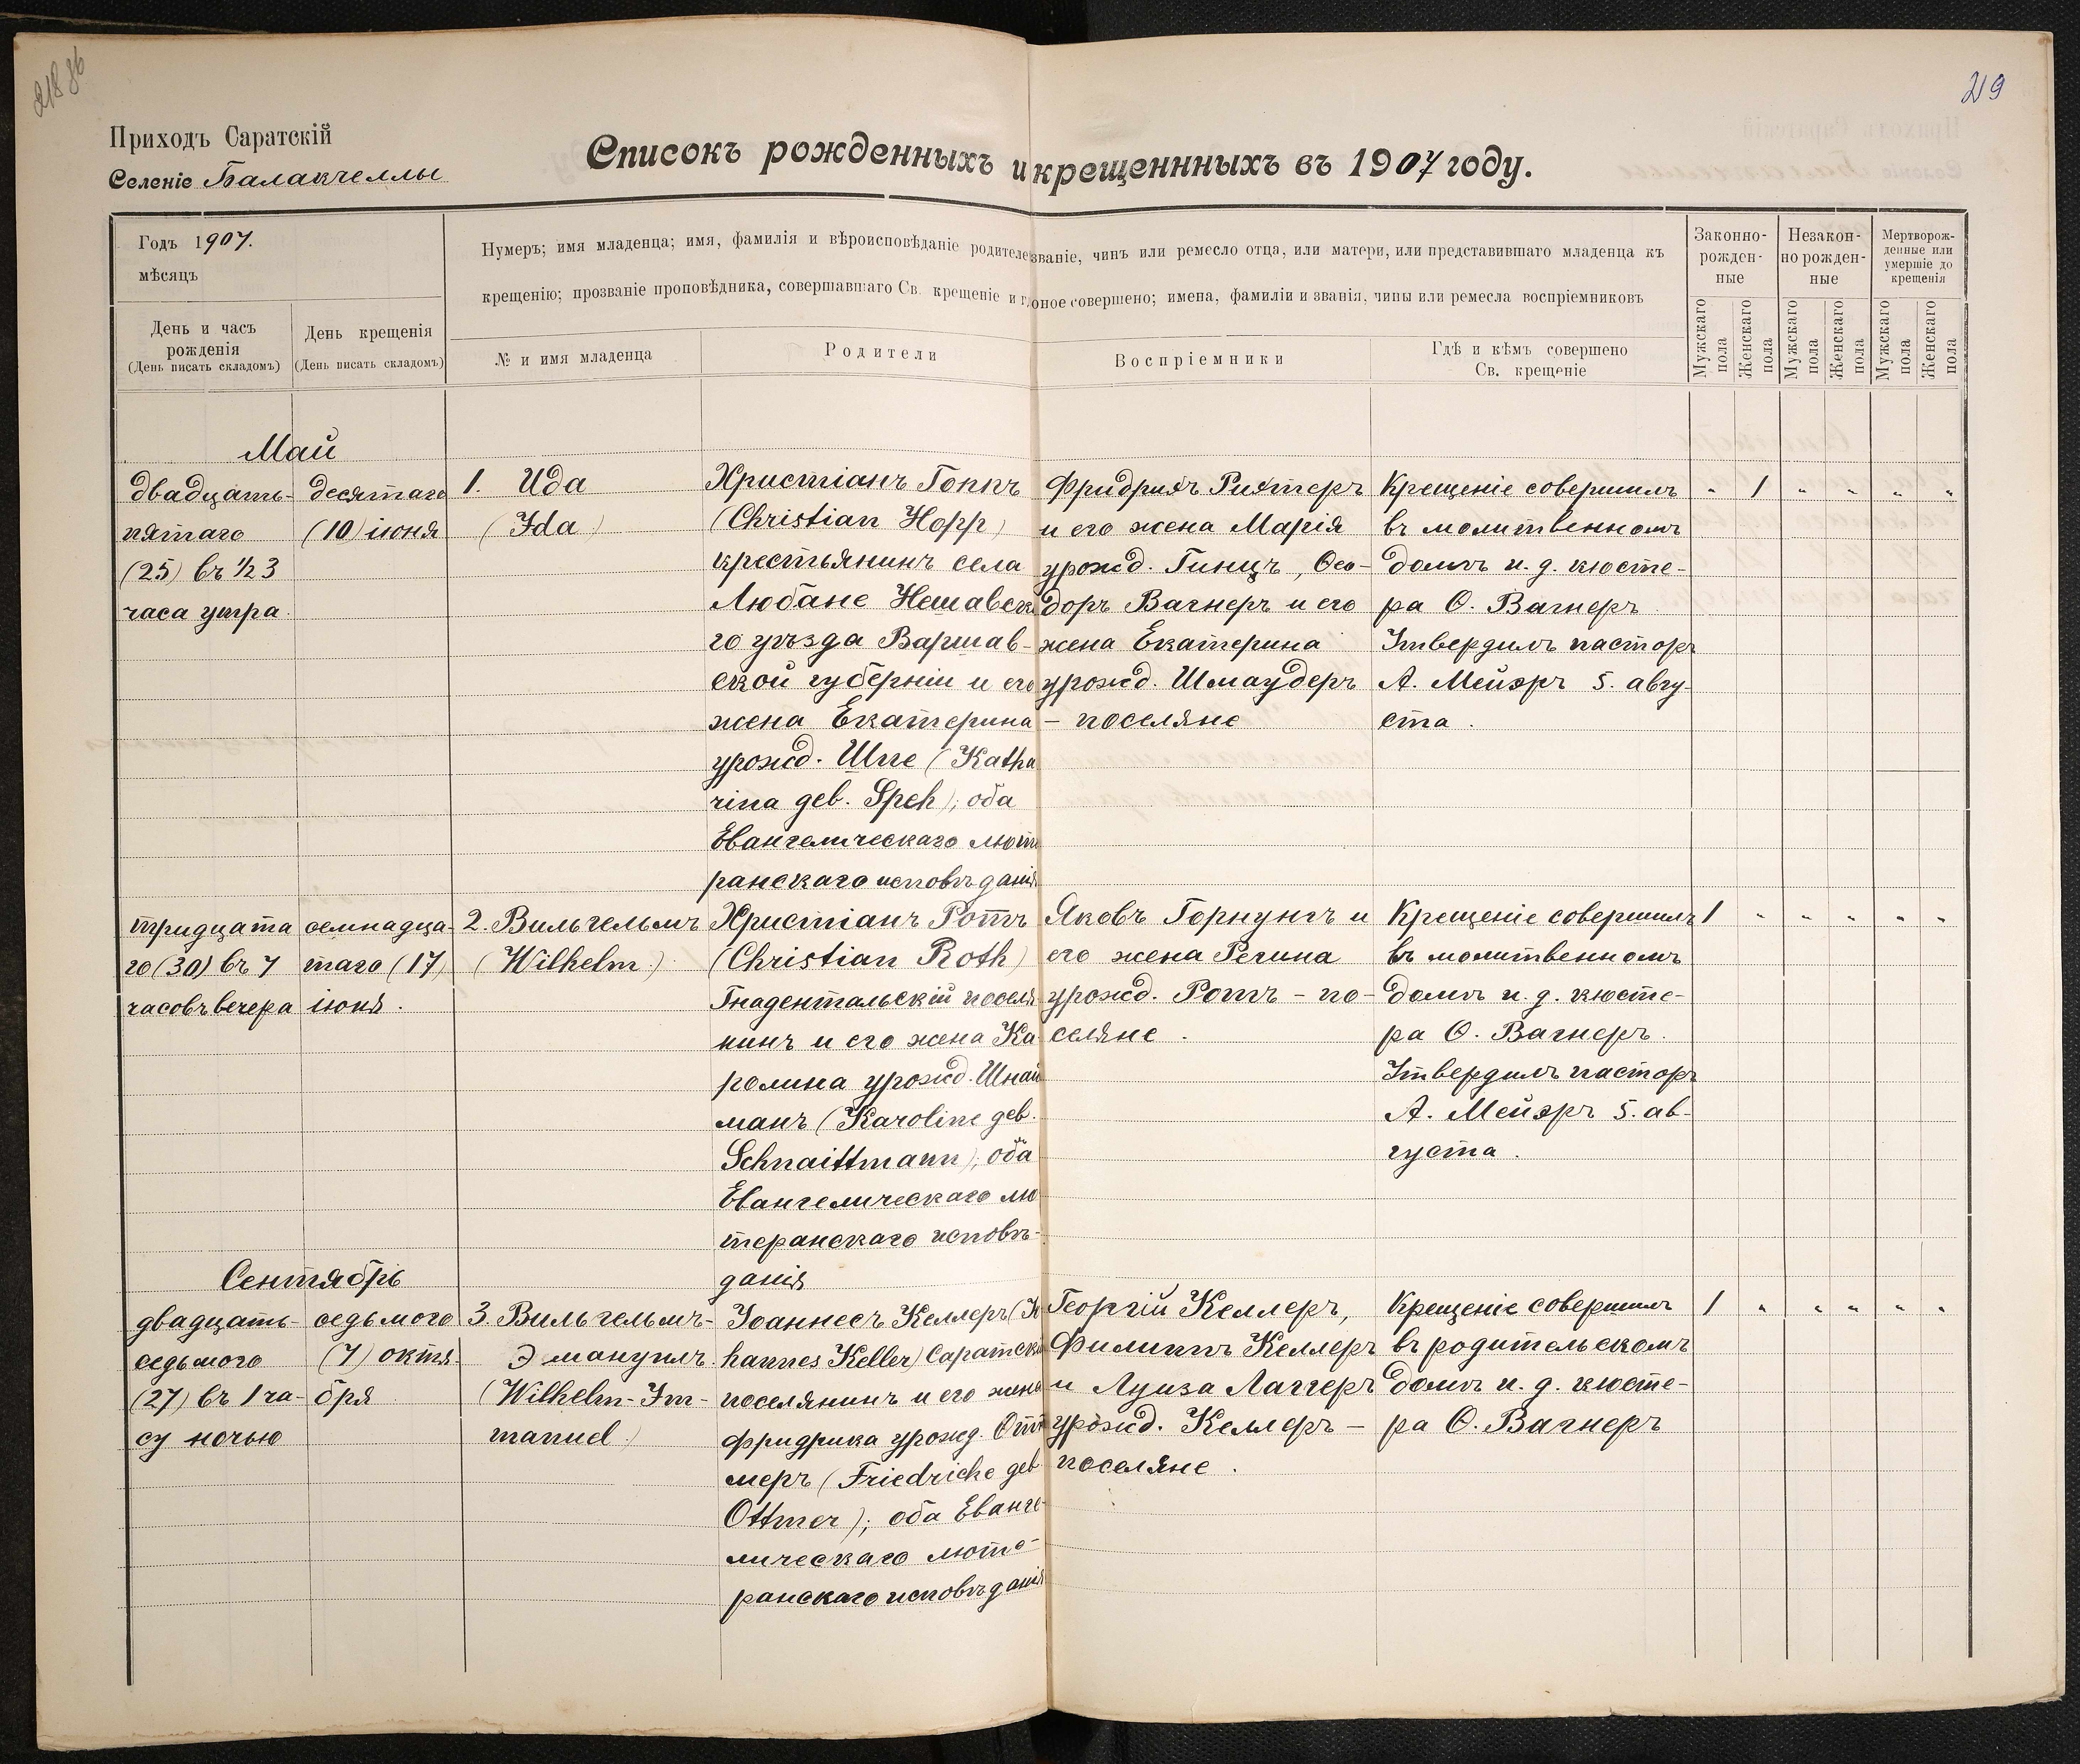 219
Приходъ Саратскій
Селеніе Балакчеллы
Списокъ рожденныхъ и крещеннныхъ въ 1907 году.
Годъ 1907.
мѣсяцъ
День и часъ
рожденія
(День писать складомъ)
День крещенія
(День писать складомъ)
Нумеръ; имя младенца; имя, фамилія и вѣроисповѣданіе родителе званіе, чинъ или ремесло отца, или матери, или представившаго младенца къ
крещенію; прозваніе проповѣдника, совершавшаго Св. крещеніе и г оное совершено; имена, фамиліи и званія, чины или ремесла воспріемниковъ
№ и имя младенца
Родители
Воспріемники
Гдѣ и кѣмъ совершено
Св. крещеніе
Законно-
рожден-
ные
Незакон-
но рожден-
ные
Мертворож-
денные или
умершіе до
крещенія
Мужскаго
пола
Женскаго
пола
Мужскаго
пола
Женскаго
пола
Мужскаго
пола
Женскаго
пола
Май
двадцать-
пятаго
(25) въ ½ 3
часа утра.
десятаго
(10) іюня
1. Ида
(Ida)
Христіанъ Гоппъ
(Christian Hopp)
крестьянинъ села
Любане Нешавска
го уѣзда Варшав-
ской губерніи и его
жена Екатерина
урожд. Шпе (Katha
rina geb. Speh); оба
Евангелическаго люте
ранскаго исповѣданія
Фридрихъ Рихтеръ
и его жена Марія
урожд. Гинцъ, Ѳео-
доръ Вагнеръ и его
жена Екатерина
урожд. Шмаудеръ
- поселяне
Крещеніе совершилъ
въ молитвенномъ
домѣ и. д. кюсте-
ра Ѳ. Вагнеръ
Утвердилъ пасторъ
А. Мейэръ 5. авгу-
ста.
" 1 " " " "
тридцата
го (30) въ 7
часовъ вечера
семнадца-
таго (17)
іюня.
2. Вильгельмъ
(Wilhelm.)
Христіанъ Ротъ
(Christian Roth)
Гнадентальскій поселя-
нинъ и его жена Ка-
ролина урожд. Шнай
манъ (Karoline geb.
Schnaittmann); оба
Евангелическаго лю
теранскаго исповѣ-
данія
Яковъ Горнунгъ и
его жена Регина
урожд. Ротъ - по-
селяне.
Крещеніе совершилъ
въ молитвенномъ
домѣ и. д. кюсте-
ра Ѳ. Вагнеръ.
Утвердилъ пасторъ
А. Мейэръ 5. ав-
густа.
1 " " " " "
Сентябрь
двадцать-
седьмого
(27) въ 1 ча-
су ночью
седьмого
(7) октя-
бря
3. Вильгельмъ-
Эмануилъ
(Wilhelm-Im-
manuel.)
Іоаннесъ Келлеръ (Jo
hannes Keller) Саратскій
поселянинъ и его жена
Фридрика урожд. Отт
меръ (Friedricke geb
Ottmer); оба Еванге-
лическаго люте-
ранскаго исповѣданія
Георгій Келлеръ,
Филиппъ Келлеръ
и Луиза Лаггеръ
урожд. Келлеръ -
поселяне.
Крещеніе совершилъ
въ родительскомъ
домѣ и. д. кюсте-
ра Ѳ. Вагнеръ
1 " " " " "